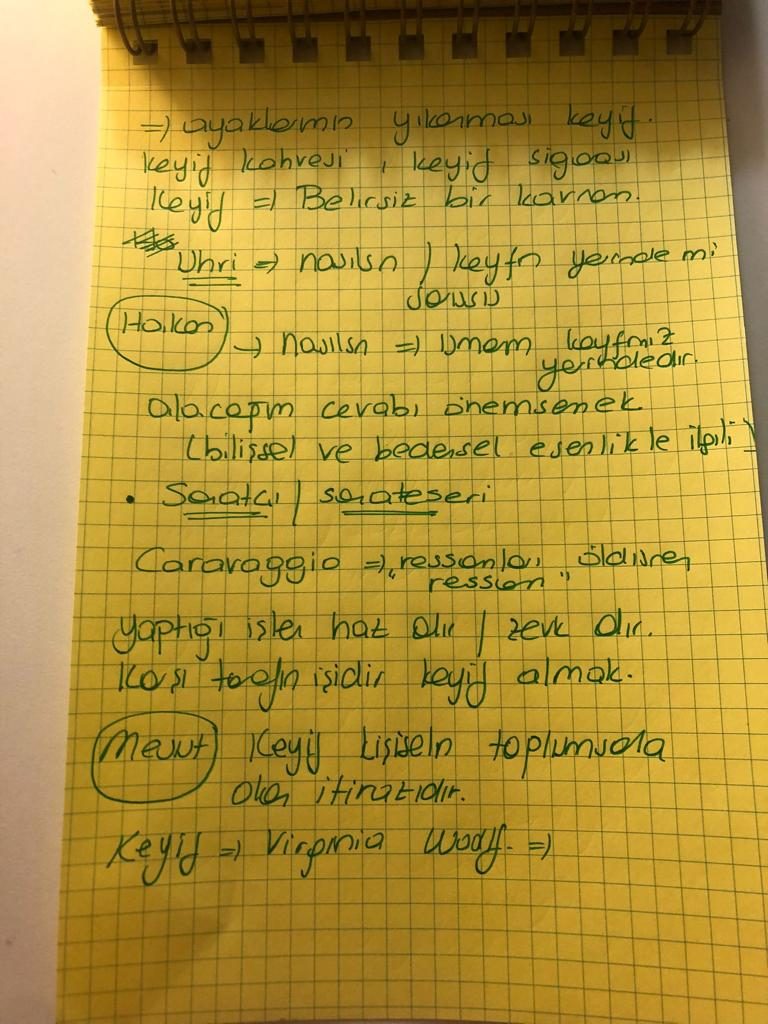 => ayaklarının yıkanması keyif.
keyif kahvesi, keyif sigarası
Keyif => Belirsiz bir kavram.
Uhri => nasılsın / keyfin yerinde mi
sorusu
Hakan -> nasılsın => Umarım keyfiniz
yerindedir.
alacağın cevabı önemsemek
(bilişsel ve bedensel esenlikle ilgili)
• Sanatçı / sanateseri
Caravaggio => "ressamları öldüren
ressam"
yaptığı işten haz alır / zevk alır.
Karşı tarafın işidir keyif almak.
Mesut Keyif kişiselin toplumsala
olan itirazıdır.
Keyif => Virginia Woolf. =>